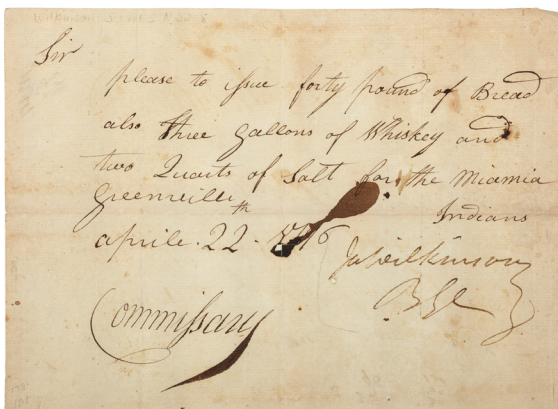 Sir
please to issue forty pound of Bread
also three Gallons of Whiskey and
two Quarts of Salt for the Miamia
Greenville Indians
aprile. 22th 1796
Ja Wilkinson
B Gl
Commissary